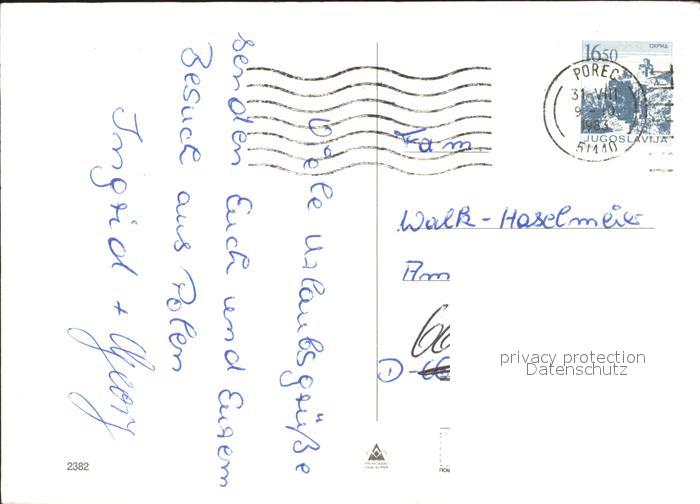 Viele Urlaubsgrüße
senden Euch und Eurem
Besuch aus Polen
Ingrid + Georg
2382
16.50
POREČ
31.VIII
1983
51440
JUGOSLAVIJA
Fam.
Walk-Haselmeier
Am
privacy protection
Datenschutz